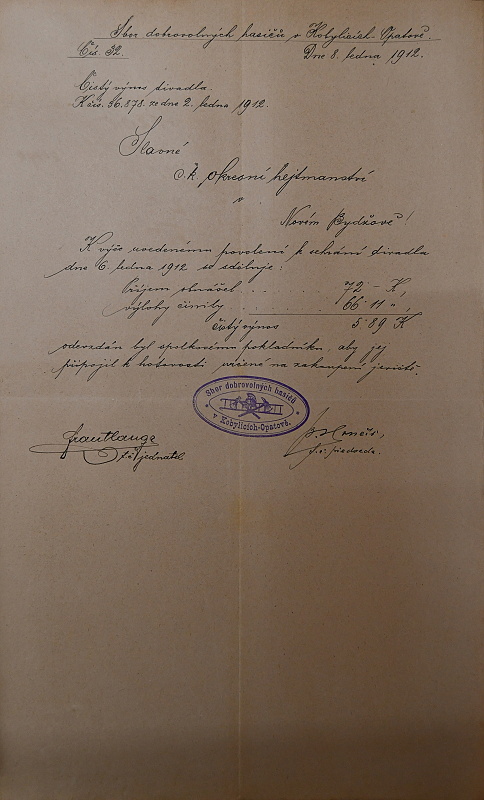 Sbor dobrovolných hasičů v Kobylicích-Opatově.
Čís. 32. Dne 8. ledna 1912.
Čistý výnos divadla.
K čís. 36.878. ze dne 2. ledna 1912.
Slavné
c. k. okresní hejtmanství
v
Novém Bydžově!
K výše uvedenému povolení k sehrání divadla
dne 6. ledna 1912 se sděluje:
Příjem obnášel . . . 72 – K,
výlohy činily . . . 66·11 „,
čistý výnos 5·89 K
odevzdán byl spolkovému pokladníku, aby jej
připojil k hotovosti určené na zakoupení
Sbor dobrovolných hasičů
v Kobylicích-Opatově.
t. č. jednatel
t. č. předseda.